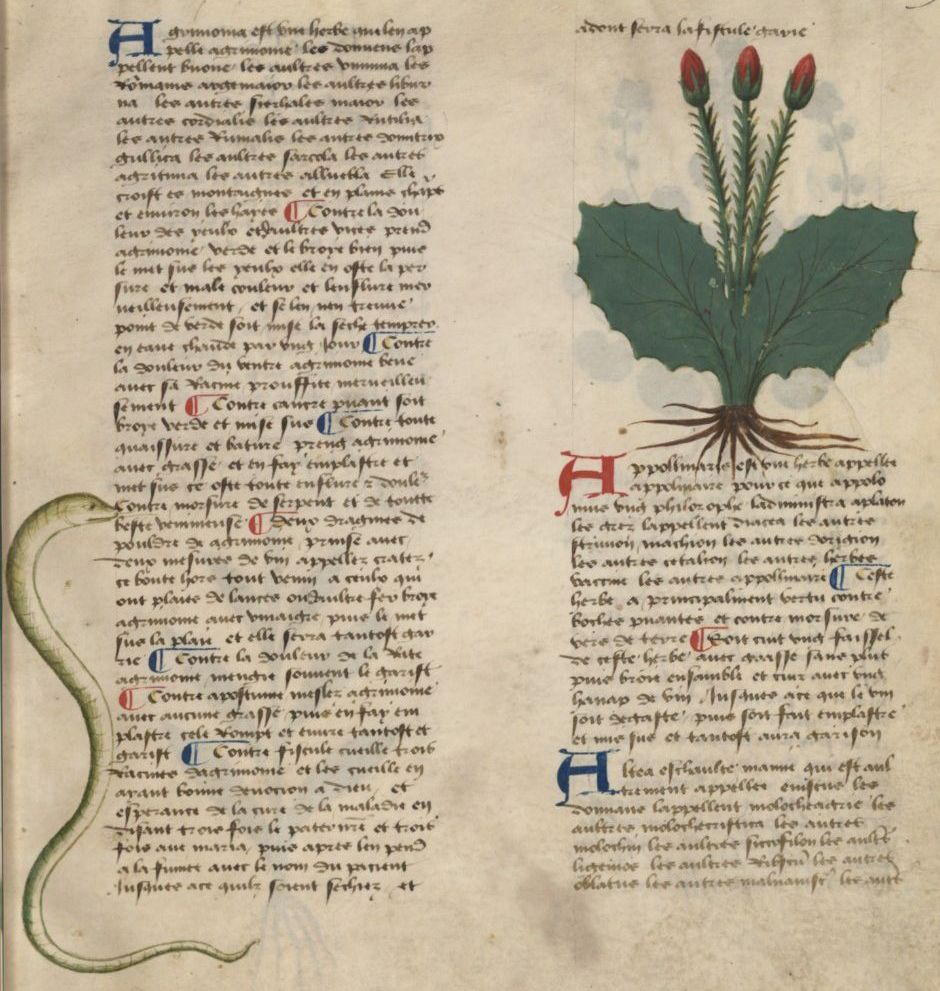 Agrimonia est vne herbe quilen ap
pelle agrimonie les dommens lap
pellent buone les aultres vmma les
Romains argemaior les aultres libur
na les autres sierhales maior les
autres cordialis les aultres Rutilia
les autres Rumalis les autres
gullica les aultres sarcola les autres
agritima les autres Elle
croist es montaignes et en plains champs
et enuiron les hayes Contre la dou
leur des yeulx et daultres vices prend
agrimonie verde et le broye bien puis
le met sus les yeulx elle en oste la per
sure et male couleur et lenflure mer
ueilleusement et se len nen treuue
point de verde soit mise la seche temprer
en eaue chaude par vng Jour Contre
la douleur du ventre agrimonie beue
auec sa Racine prouffite merueilleu
sement Contre cancre puant soit
broye verde et mise sus Contre toute
quaissure et bature preng agrimonie
auec grasse et en fay emplastre et
met sus ce oste toute enflure z douler
Contre morsure de serpent et de toutte
beste venimeuse Deux dragmes de
pouldre de agrimonie prinse auec
deux mesures de vin appellez crater
ce boute hors tout venin a ceulx qui
ont plaies de lances ou daultre fer broye
agrimonie auec vinaigre puis le met
sus la plaie et elle sera tantost gar
rie Contre la douleur de la Rate
agrimonie mengie souuent le garist
Contre apostume meslez agrimonie
auec aucune grasse puis en fay em
plastre cele Rompt et cuure tantost et
garist Contre fiscule cueille trois
Racines dagrimonie et les cueille en
ayant bonne deuocion a dieu et
esperance de la cure de la maladie en
disant trois fois le paternre et trois
fois aue maria puis apres len pend
a la fumee auec le nom du pacient
Jusques ace quilz soient sechiez et
adont sera la fistule garie
Appollinaris est vne herbe appellee
appolinaire pour ce que appolo
nius vng philosophe ladministra aplaton
les grez lappellent diacea les autres
strimon machion les autres dorigion
les autres cetalion les autres herbes
vaccine les autres appollinaire Ceste
herbe a principalment vertu contre
boches puantes et contre morsure de
vers de terre Soit cuit vng faissel
de ceste herbe auec grasse sans plus
puis broye ensamble et cuis auec vng
hanap de vin Jusques ace que le vin
soit degaste puis soit fait emplastre
et mis sus et tantost aura garison
Altea eschaulte manne qui est aul
trement appellee euiscus les
dommans lappellent molocheagrie les
aultres molochecristica les autres
molochin les aultres sicifilon les aultres
ligeinos les aultres Ribscus les autres
oblatus les autres les autres